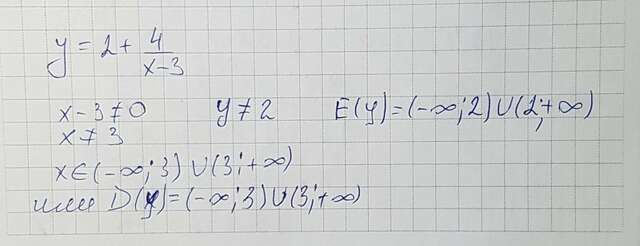 y = 2 + 4/(x-3)
x - 3 ≠ 0 y ≠ 2 E(y) = (-∞; 2) ∪ (2; +∞)
x ≠ 3
x ∈ (-∞; 3) ∪ (3; +∞)
или D(y) = (-∞; 3) ∪ (3; +∞)